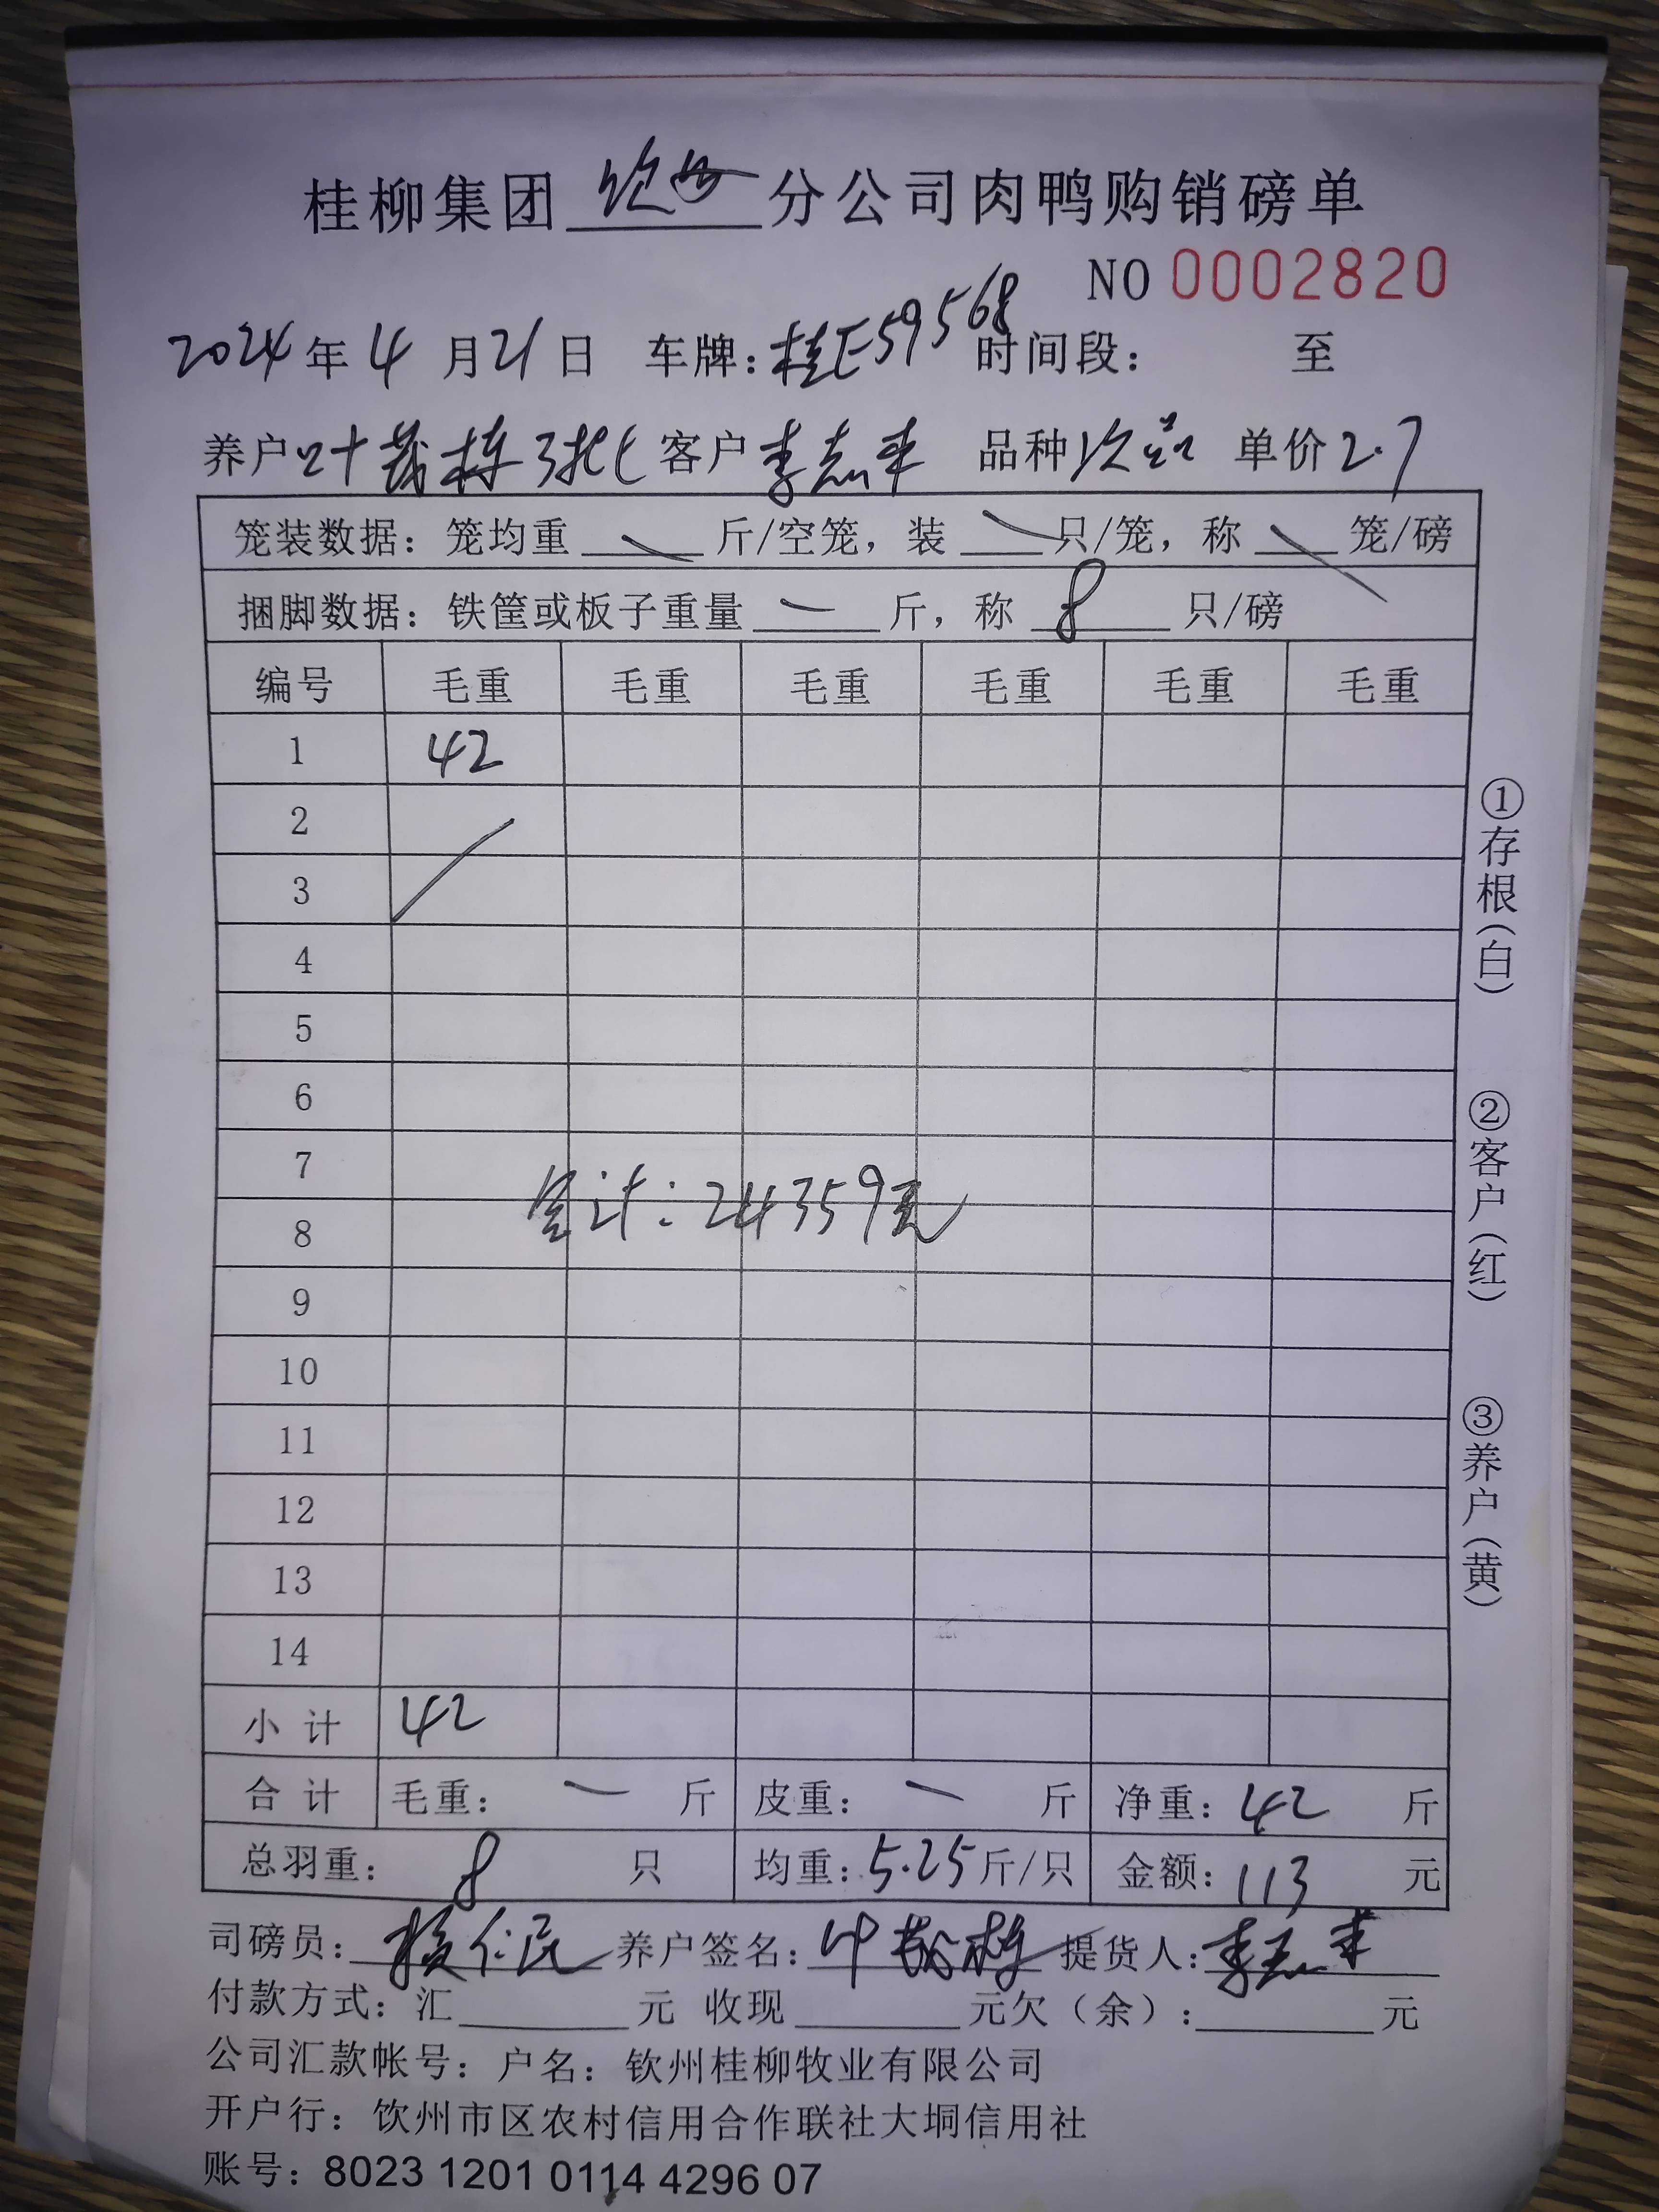 桂柳集团 钦州 分公司肉鸭购销磅单
NO 0002820
2024年4月21日 车牌:桂E59568 时间段: 至
养户 叶茂栋3批 客户 李志来 品种 次品 单价2.7
笼装数据:笼均重 斤/空笼,装 只/笼,称 笼/磅
捆脚数据:铁筐或板子重量 一 斤,称 8 只/磅
编号 毛重 毛重 毛重 毛重 毛重 毛重
1 42
2
3
4
5
6
7
总计:24359元
8
9
10
11
12
13
14
小计 42
合计 毛重: 一 斤 皮重: 一 斤 净重:42 斤
总羽重: 8 只 均重:5.25斤/只 金额:113 元
司磅员: 仁民 养户签名:叶茂栋 提货人:李志来
付款方式:汇 元 收现 元欠(余): 元
公司汇款帐号:户名:钦州桂柳牧业有限公司
开户行:饮州市区农村信用合作联社大垌信用社
账号:8023 1201 0114 4296 07
①存根(白)
②客户(红)
③养户(黄)